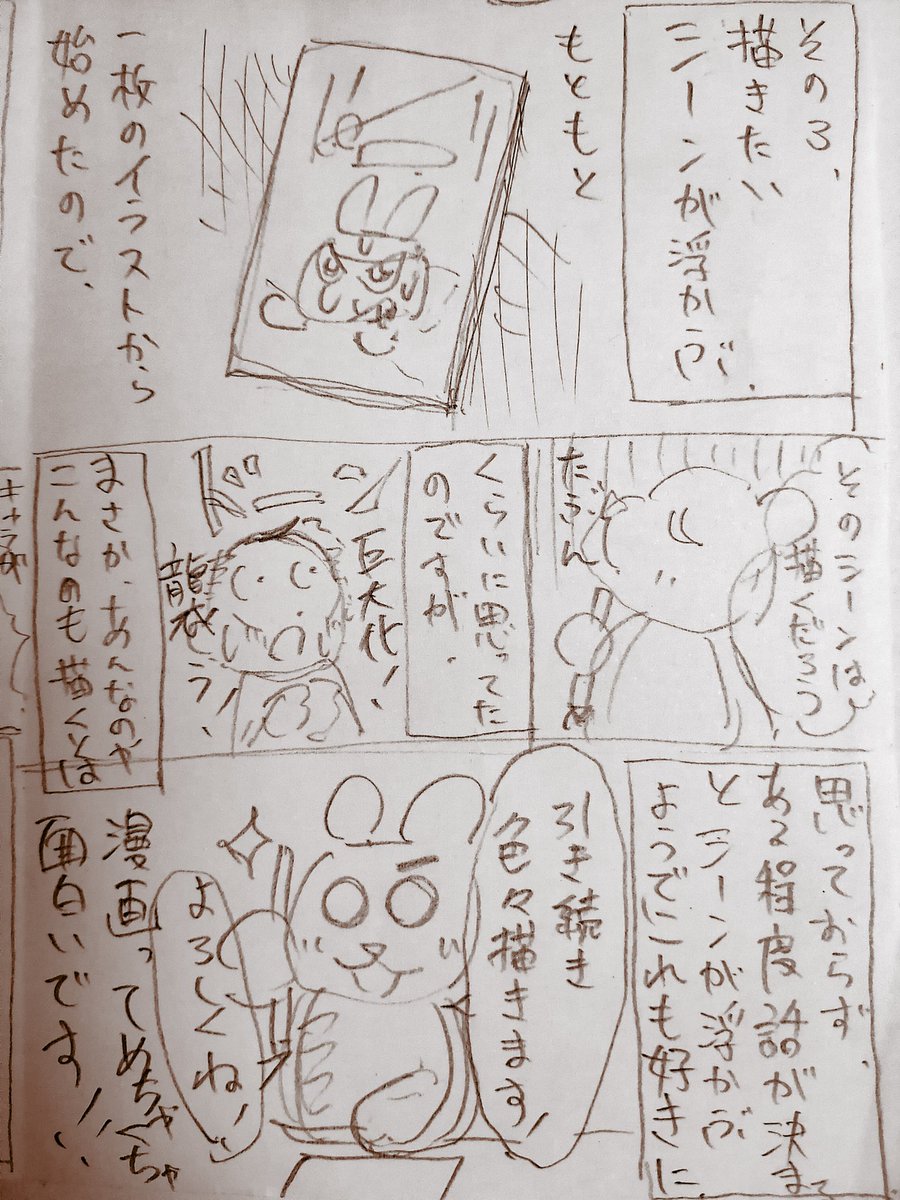 その3、
描きたい
シーンが浮かぶ
もともと
一枚のイラストから
始めたので、
そのシーンは
描くだろう
くらいに思ってた
のですが、
巨大化!
龍衣
まさか、あんなのや
こんなのも描くとは
思っておらず、
ある程度話が決まっ
とシーンが浮かぶ
ようでこれも好きに
引き続き
色々描きます!
よろしくね!
漫画ってめちゃくちゃ
面白いです!!